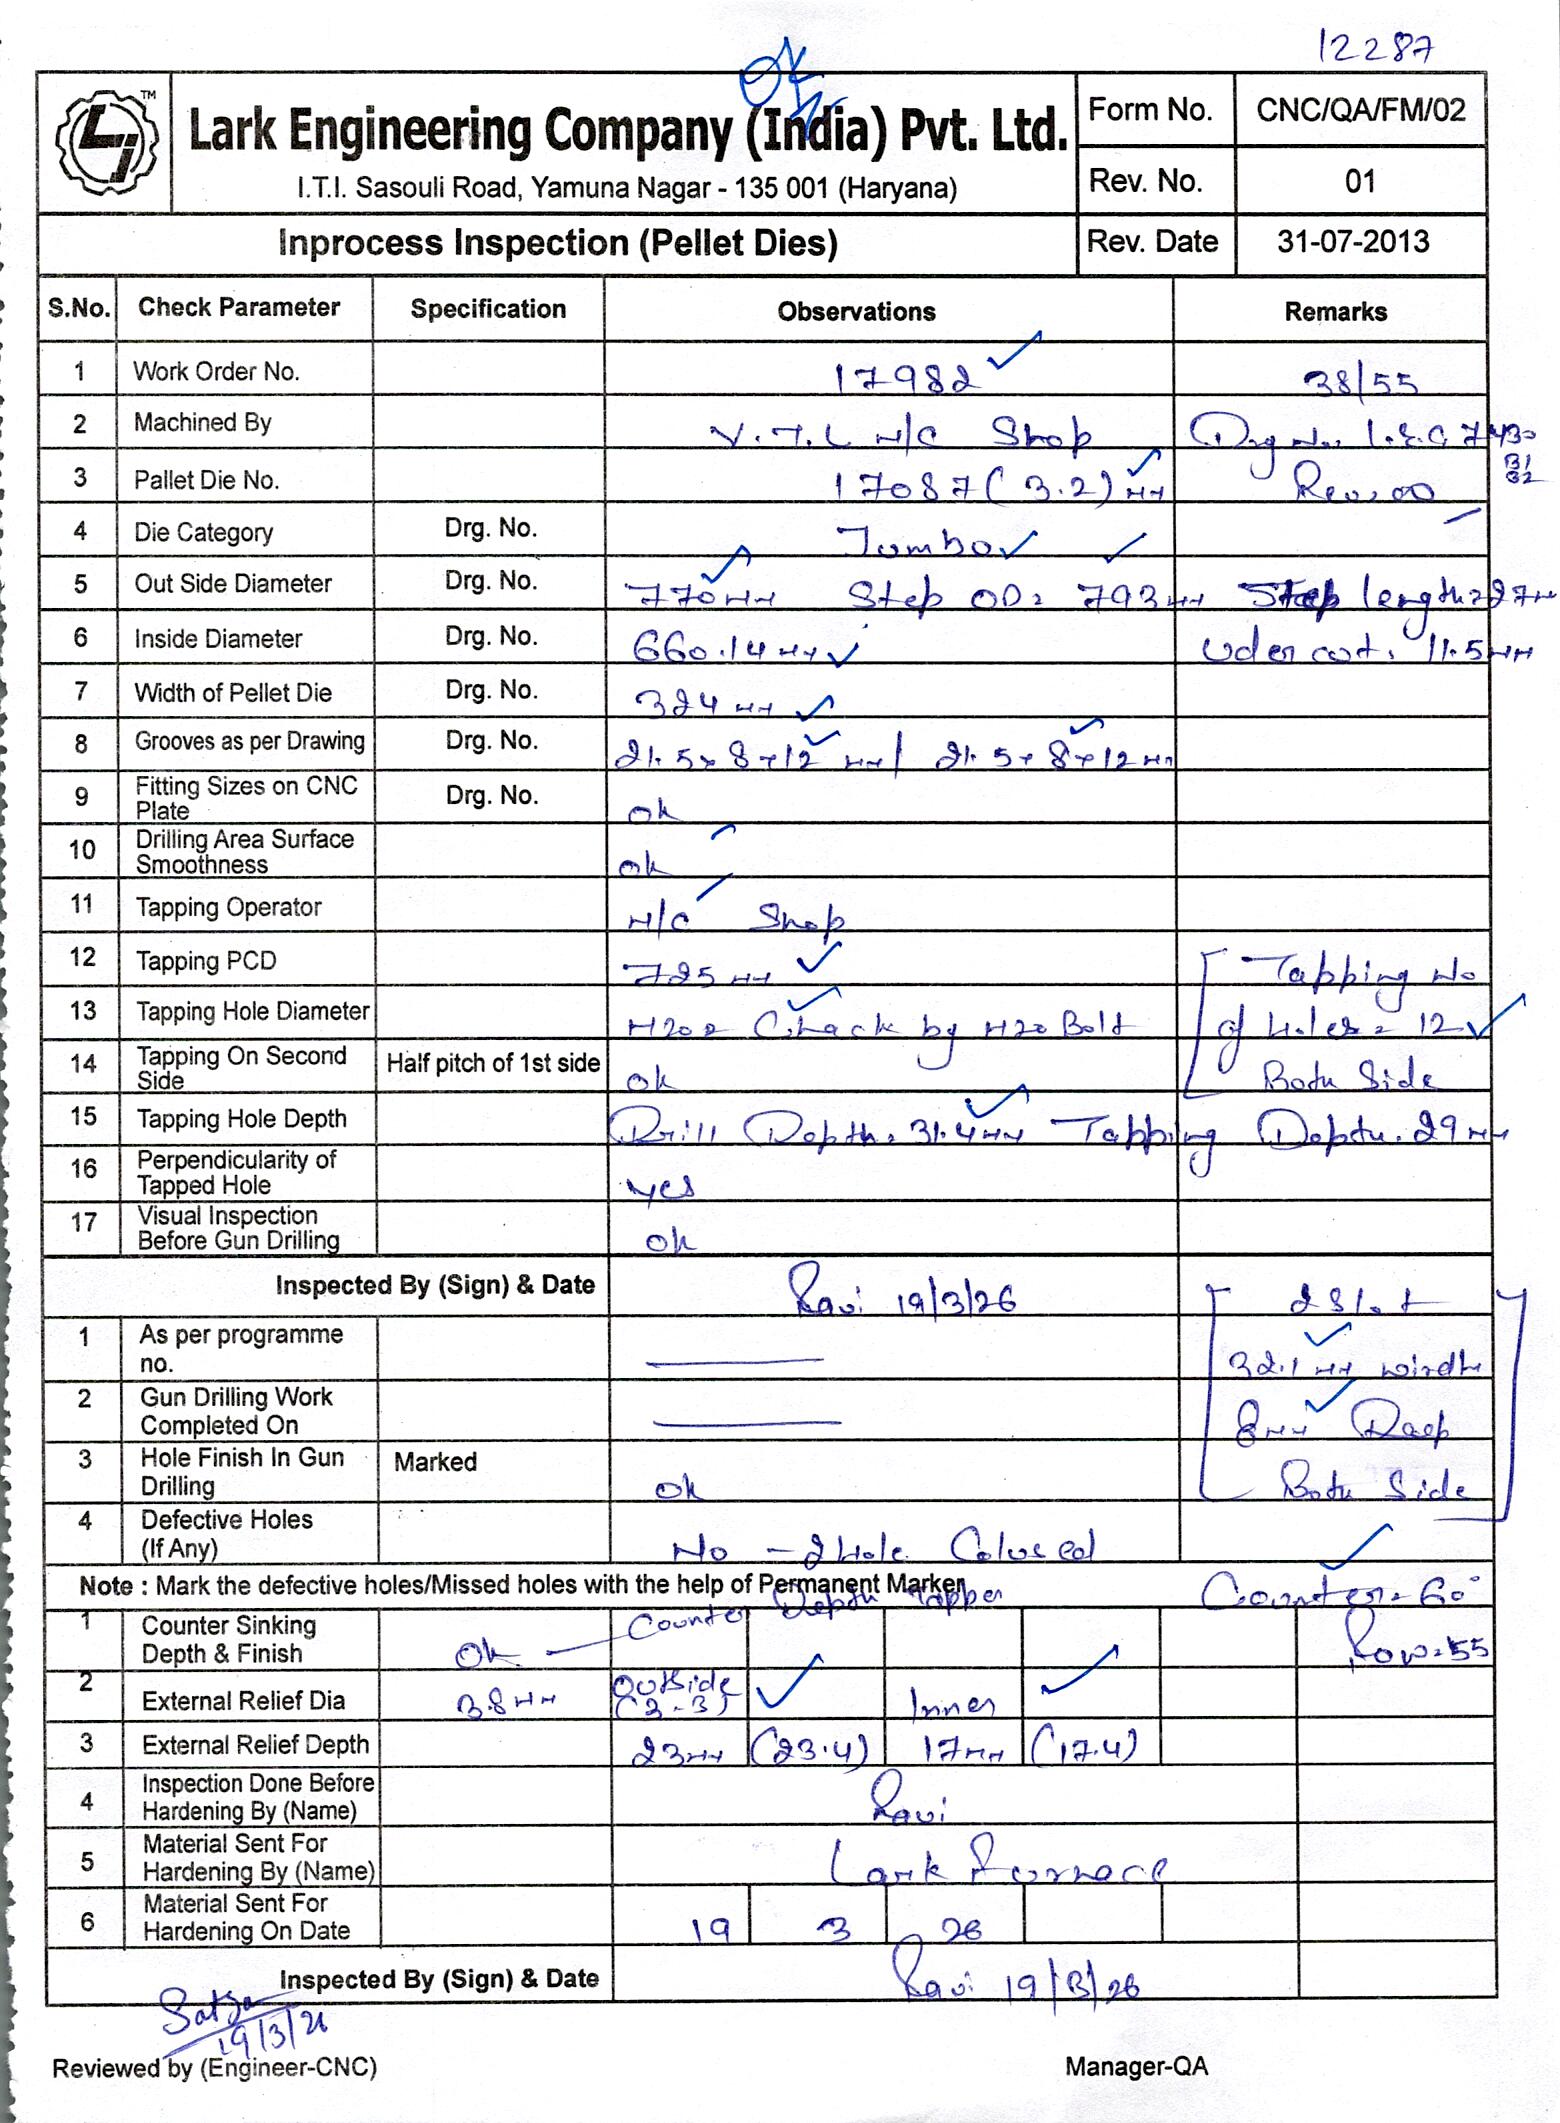 12287
OK
LJ TM
Lark Engineering Company (India) Pvt. Ltd.
I.T.I. Sasouli Road, Yamuna Nagar - 135 001 (Haryana)
Form No. CNC/QA/FM/02
Rev. No. 01
Inprocess Inspection (Pellet Dies) Rev. Date 31-07-2013
S.No. Check Parameter Specification Observations Remarks
1 Work Order No. 17982 38/55
2 Machined By V.T.L M/C Shop Drg No. L.E.C 7430
31
32
3 Pallet Die No. 17087 (3.2) MM Rev. 00
4 Die Category Drg. No. Jumbo
5 Out Side Diameter Drg. No. 770 MM Step OD = 793 MM Step length = 27 M
6 Inside Diameter Drg. No. 660.14 MM Uder cut. 11.5 MM
7 Width of Pellet Die Drg. No. 324 MM
8 Grooves as per Drawing Drg. No. 21.5 x 8 x 12 MM / 21.5 x 8 x 12 MM
9 Fitting Sizes on CNC Plate Drg. No. Ok
10 Drilling Area Surface Smoothness Ok
11 Tapping Operator M/C Shop
12 Tapping PCD 725 MM Tapping No
13 Tapping Hole Diameter M20 = Chack by M20 Bolt of Holes = 12
14 Tapping On Second Side Half pitch of 1st side Ok Both Side
15 Tapping Hole Depth Drill Depth = 31.4 MM Tapping Depth. 29 MM
16 Perpendicularity of Tapped Hole Yes
17 Visual Inspection Before Gun Drilling Ok
Inspected By (Sign) & Date Ravi 19/3/26 2 Slot
1 As per programme no. 32.1 MM windth
2 Gun Drilling Work Completed On 8 MM Deep
3 Hole Finish In Gun Drilling Marked Ok Both Side
4 Defective Holes (If Any) No - 2 Hole Colused
Note : Mark the defective holes/Missed holes with the help of Permanent Marker Counter = 60°
1 Counter Sinking Depth & Finish Ok — Counter Depth Tapper Row = 55
2 External Relief Dia 3.8 MM Outside (3-3) Inner
3 External Relief Depth 23 MM (23.4) 17 MM (17.4)
4 Inspection Done Before Hardening By (Name) Ravi
5 Material Sent For Hardening By (Name) Lark Furnace
6 Material Sent For Hardening On Date 19 3 26
Inspected By (Sign) & Date Ravi 19/3/26
19/3/26
Reviewed by (Engineer-CNC) Manager-QA